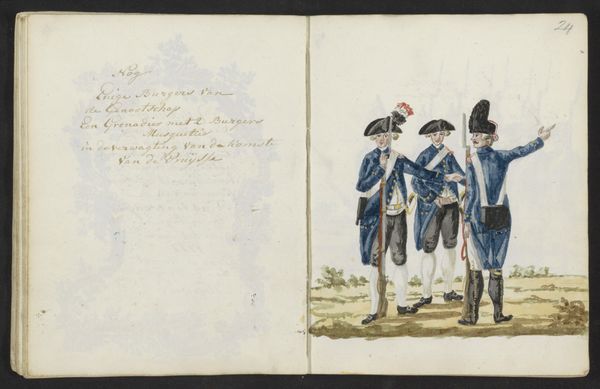 Nog
Enige Burgers van
de Genootschap
Een Grenadier met 2 Burgers
Musquetiers
in de verwagting van de komst
van de Pruijsse
24